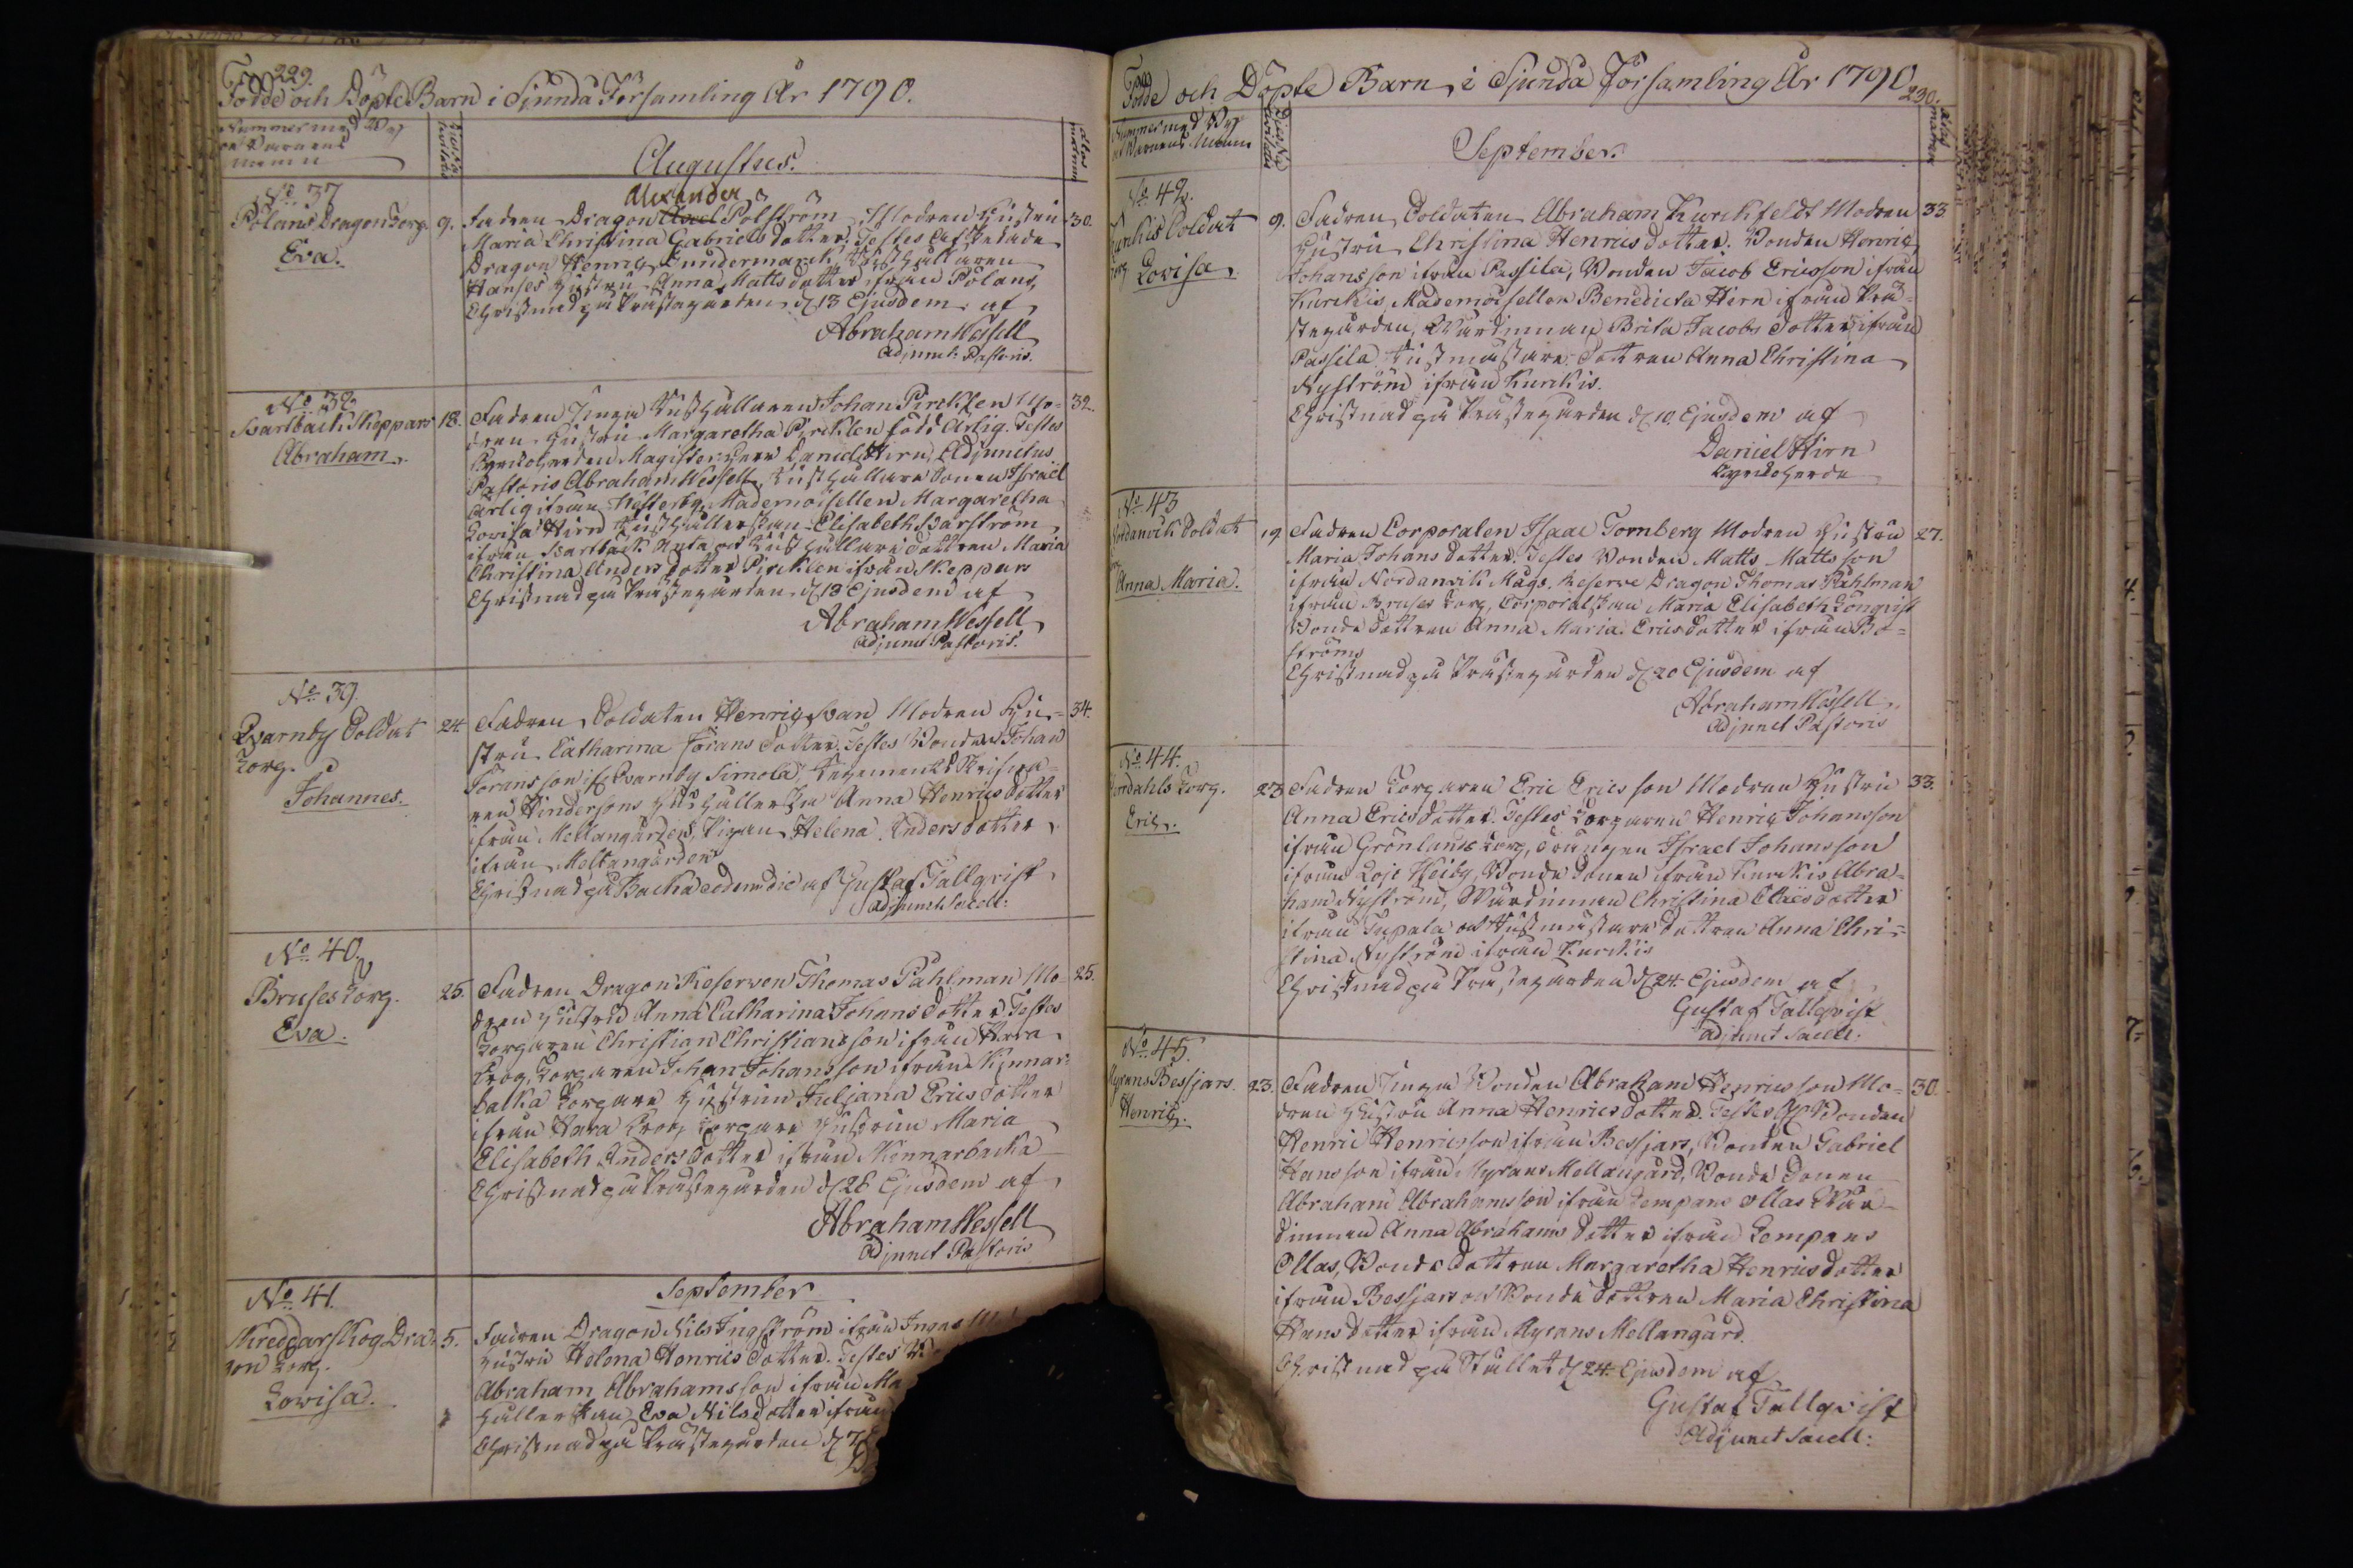 229.
Födde och Döpte Barn i Sjundå Församling År 1790.
Nummer med By
och Barnens
namn
Augustus.
Alexander
No. 37
Pölans Dragon Torp.
Eva.
9. Fadren Dragon Axel Polström Modren Hustru 30.
Maria Christina Gabrielsdotter. Testes Afskedade
Dragon Henric Sundermarck, Rusthållaren
Hanses Hustru Anna Mattsdotter ifrån Pölans,
Christnad på Prästegården d. 13 Ejusdem af
Abraham Wessell
Adjunct: Pastoris.
No. 38
Svartbäck Skeppars
Abraham.
18. Fadren Unga Rusthållaren Johan Pircklen Mo= 32.
dren Hustru Margaretha Pircklen född Ärlig. Testes
Kyrckoherden Magister Herr Daniel Hirn, Adjunctus
Pastoris Abraham Wessell, Rusthållare Sonen Israël
Ärlig ifrån Mademoisellen Margaretha
Lovisa Hirn Rusthållerskan Elisabeth Svarström
ifrån Svartbäck och Rusthållare Dottren Maria
Christina Anders dotter Pircklen ifrån Skeppars
Christnad på Prästegården d. 18 Ejusdem af
Abraham Wessell
Adjunct Pastoris.
No. 39.
Qvarnby Soldat
Torp.
Johannes.
24. Fadren Soldaten Henric Svan Modren Hu= 34.
stru Catharina Jörans dotter. Testes Bonden Johan
Göransson if. Qvarnby Simola, Regements Skrifva=
ren Hindersons Hushållerska Anna Henricsdotter
ifrån Mellangården, Pigan Helena Andersdotter
ifrån Mellangården
Christnad på Backa eodem die af Gustaf Tallqvist
Adjunct. Sacell:
No. 40.
Bruses Torp.
Eva.
25. Fadren Dragon Reserven Thomas Påhlman Mo= 25.
dren Hustru Anna Catharina Johansdotter Testes
Torparen Christian Christiansson ifrån Hara
Krog, Torparen Johan Johansson ifrån Kinnar=
backa Torpare Hustrun Juliana Ericsdotter
ifrån Hara Krog, Torpare Hustrun Maria
Elisabeth Andersdotter ifrån Kinnarbacka
Christnad på Prästegården d. 28 Ejusdem af
Abraham Wessell
Adjunct Pastoris
September
No. 41.
Dra=
gon Torp.
Lovisa.
5. Fadren Dragon Nils Ingström ifrån
Hustru Helena Henricsdotter. Testes
Abraham Abrahamsson ifrån Ma
hållerskan Eva Nilsdotter ifrån
Christnad på Prästegården d. 7
Födde och Döpte Barn i Sjundå Församling År 1790
230.
Nummer med By
och Barnens Namn
September.
No. 42.
Kurckis Soldat
Torp
Lovisa.
9. Fadren Soldaten Abraham Kurckfeldt Modren 33
Hustru Christina Henricsdotter. Bonden Henric
Johansson ifrån Passila, Bonden Jacob Ericsson ifrån
Kurckis, Mademoisellen Benedicta Hirn ifrån Prä=
stegården, Värdinnan Brita Jacobs dotter ifrån
Passila Rustmästare Dottren Anna Christina
Nyström ifrån Kurckis.
Christnad på Prästegården d. 10 Ejusdem af
Daniel Hirn
Kyrckoherde
No. 43
Nordanvik Soldat
Anna Maria.
19 Fadren Corporalen Isaac Tornberg Modren Hustru 27.
Maria Johans dotter. Testes Bonden Matts Mattsson
ifrån Nordanvik Mågs, Reserve Dragon Thomas Påhlman
ifrån Bruses Torp, Corporalskan Maria Elisabeth Lönqvist
Bonde Dottren Anna Maria Ericsdotter ifrån Bo=
ströms
Christnad på Prästegården d. 20 Ejusdem af
Abraham Wessell
Adjunct Pastoris
No. 44.
Nordahls Torp.
Eric.
23 Fadren Torparen Eric Ericsson Modren Hustru 33.
Anna Ericsdotter. Testes Torparen Henric Johansson
ifrån Grönlunds Torp, Drängen Israel Johansson
ifrån Lojo Heiby, Bonde Sonen ifrån Kurckis Abra=
ham Nyström, Värdinnan Christina Claesdotter
ifrån Tupala och Rustmästare Dottren Anna Chri=
stina Nyström ifrån Kurckis
Christnad på Prästegården d. 24 Ejusdem af
Gustaf Tallqvist
Adjunct Sacell.
No. 45.
Myrans Bessjars.
Henric.
23. Fadren Unga Bonden Abraham Henricsson Mo= 30.
dren Hustru Anna Henricsdotter. Testes Bonden
Henric Henricsson ifrån Bessjars, Bonden Gabriel
Hansson ifrån Myrans Mellangård, Bonde Sonen
Abraham Abrahamsson ifrån Kempans Ollas Vär=
dinnan Anna Abrahams dotter ifrån Kempans
Ollas, Bonde Dottren Margaretha Henricsdotter
ifrån Bessjars och Bonde Dottren Maria Christina
Hansdotter ifrån Myrans Mellangård.
Christnad på Stället d. 24. Ejusdem af
Gustaf Tallqvist
Adjunct Sacell: